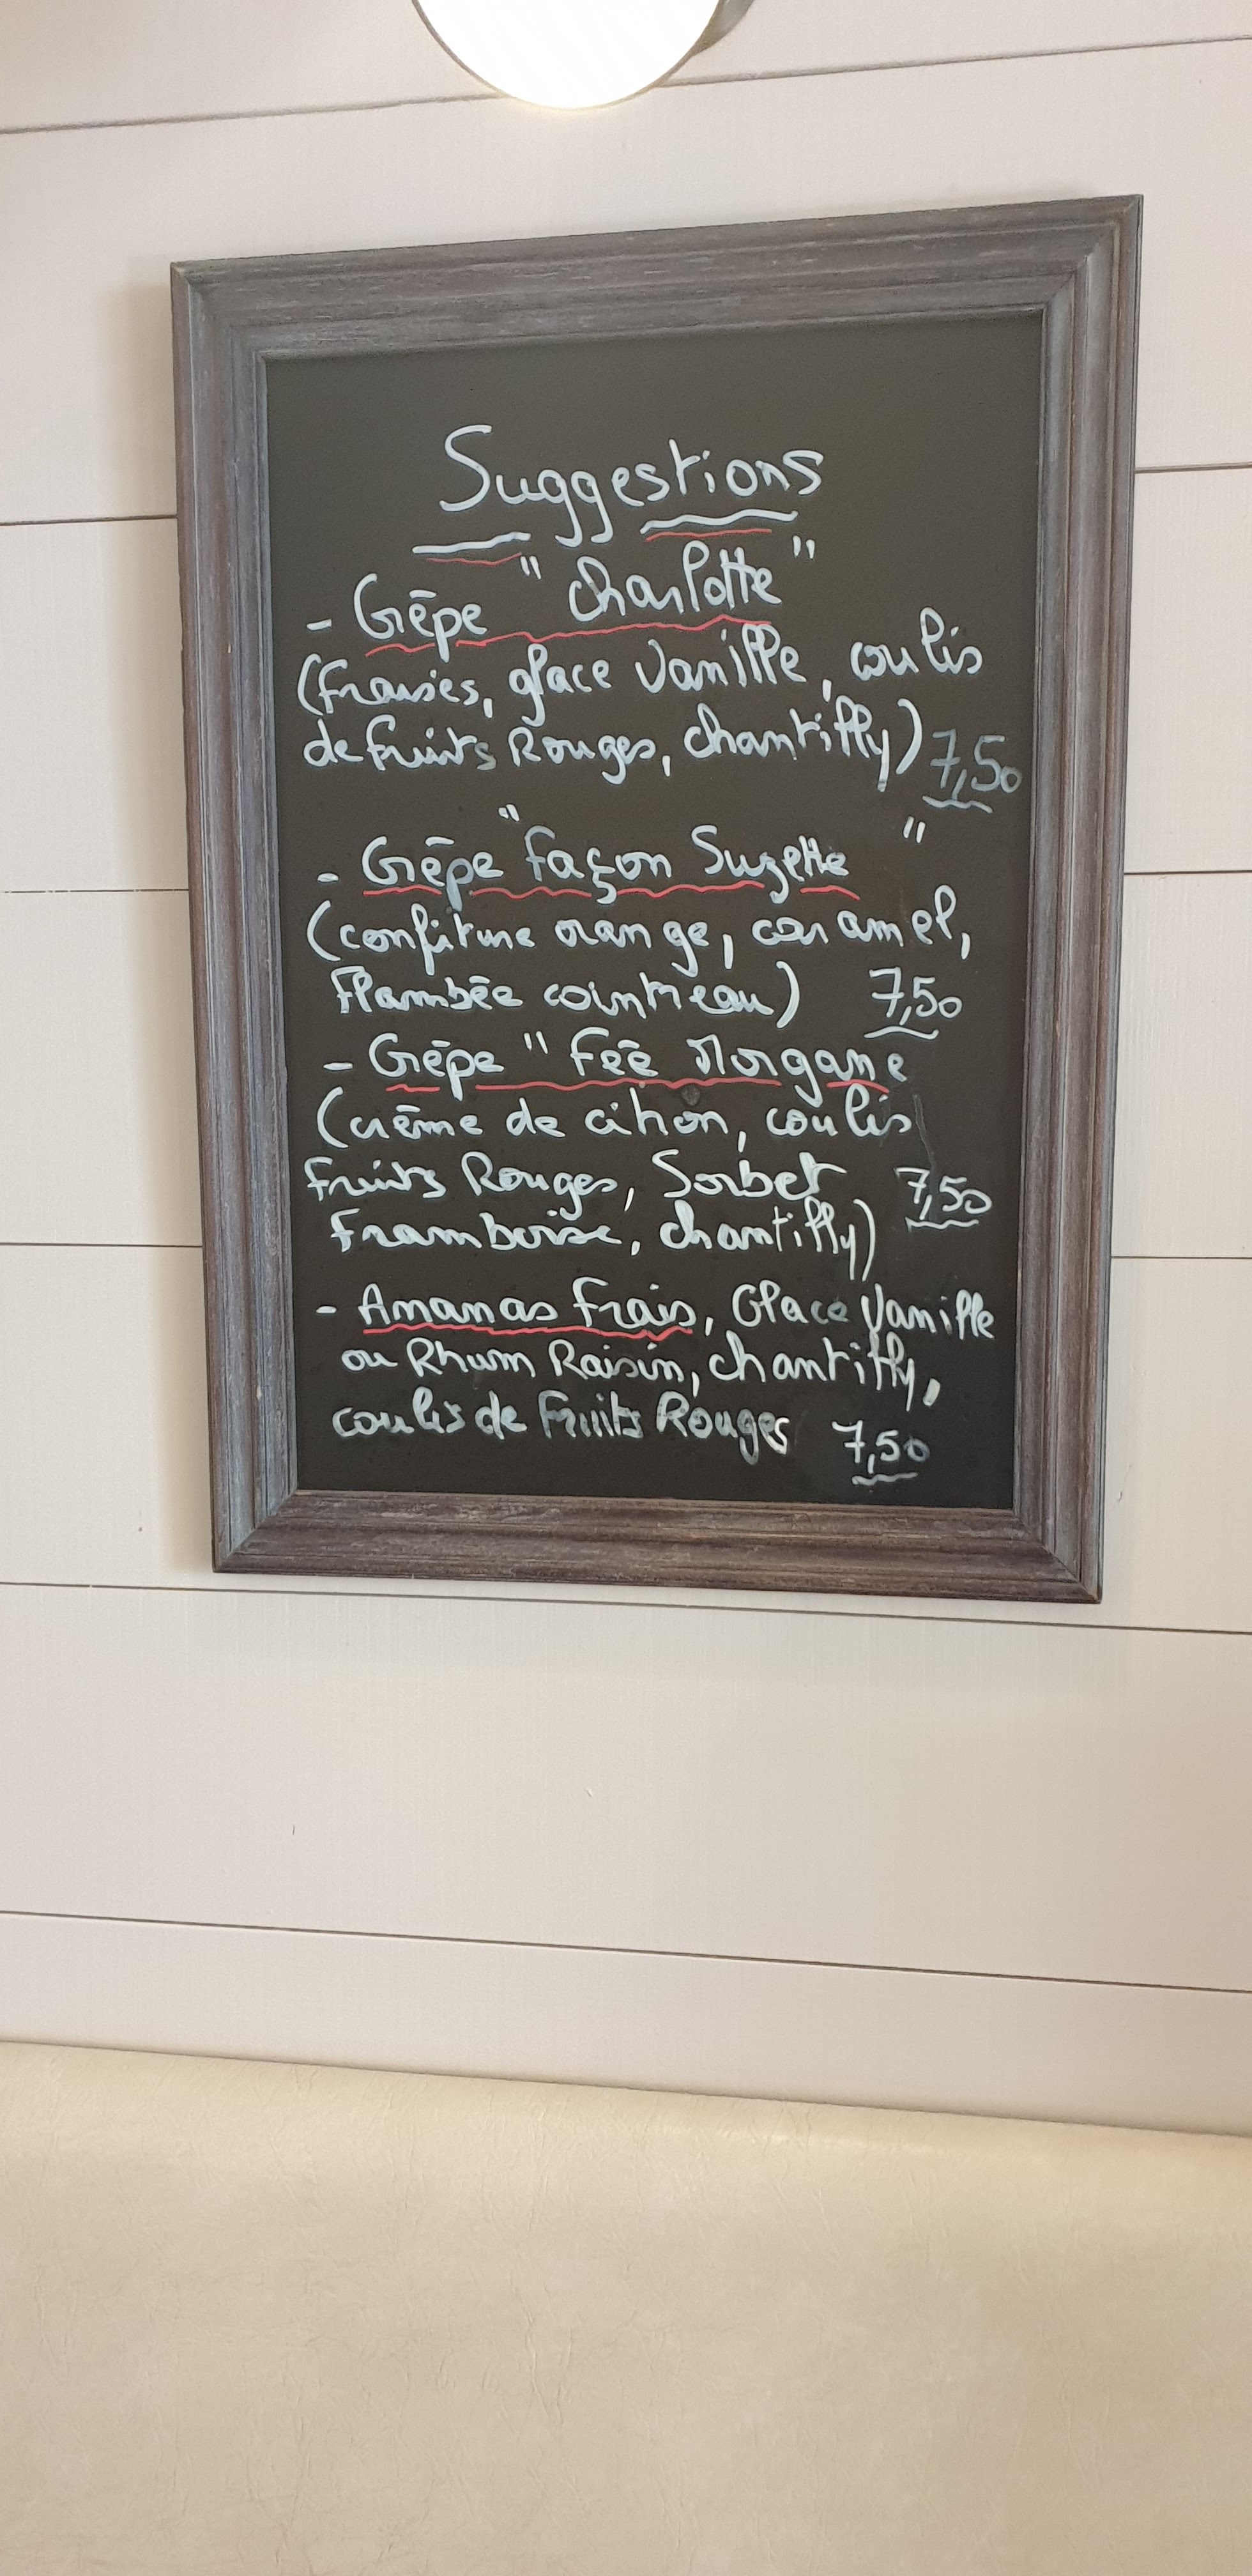 Suggestions
- Crêpe "Charlotte"
(fraises, glace Vanille, coulis
de fruits Rouges, chantilly) 7,50
- Crêpe "façon Suzette"
(confiture orange, caramel,
Flambée cointreau) 7,50
- Crêpe "Fée Morgane
(crème de citron, coulis
Fruits Rouges, Sorbet 7,50
Framboise, chantilly)
- Ananas Frais, Glace Vanille
ou Rhum Raisin, chantilly,
coulis de Fruits Rouges 7,50